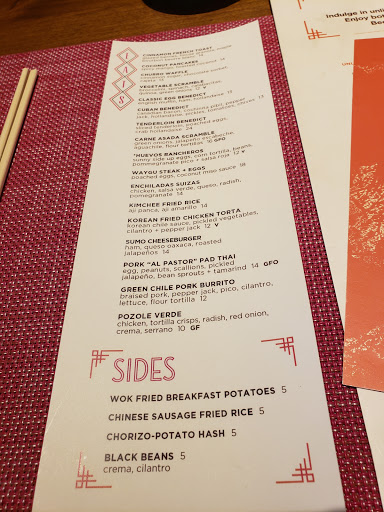 EATS
CINNAMON FRENCH TOAST
COCONUT PANCAKES
CHURRO WAFFLE
VEGETABLE SCRAMBLE
CLASSIC EGG BENEDICT
english muffin, ham, hollandaise 12
CUBAN BENEDICT
jack, hollandaise, pickles, tomatoes, chives 13
TENDERLOIN BENEDICT
sliced tenderloin, poached eggs,
crab hollandaise 24
CARNE ASADA SCRAMBLE
green onions, jalapeño escabeche,
aguachile, flour tortillas 16 GFO
*HUEVOS RANCHEROS
sunny side up eggs, corn tortilla, beans,
pomegranate pico + salsa roja 12 V
WAYGU STEAK + EGGS
poached eggs, coconut miso sauce 18
ENCHILADAS SUIZAS
chicken, salsa verde, queso, radish,
pomegranate 14
KIMCHEE FRIED RICE
Aji panca, aji amarillo 14
KOREAN FRIED CHICKEN TORTA
korean chile sauce, pickled vegetables,
cilantro + pepper jack 12 V
SUMO CHEESEBURGER
ham, queso oaxaca, roasted
jalapeños 14
PORK "AL PASTOR" PAD THAI
egg, peanuts, scallions, pickled
jalapeño, bean sprouts + tamarind 14 GFO
GREEN CHILE PORK BURRITO
braised pork, pepper jack, pico, cilantro,
lettuce, flour tortilla 12
POZOLE VERDE
chicken, tortilla crisps, radish, red onion,
crema, serrano 10 GF
SIDES
WOK FRIED BREAKFAST POTATOES 5
CHINESE SAUSAGE FRIED RICE 5
CHORIZO-POTATO HASH 5
BLACK BEANS 5
crema, cilantro
Indulge in unli
Enjoy bo
Be